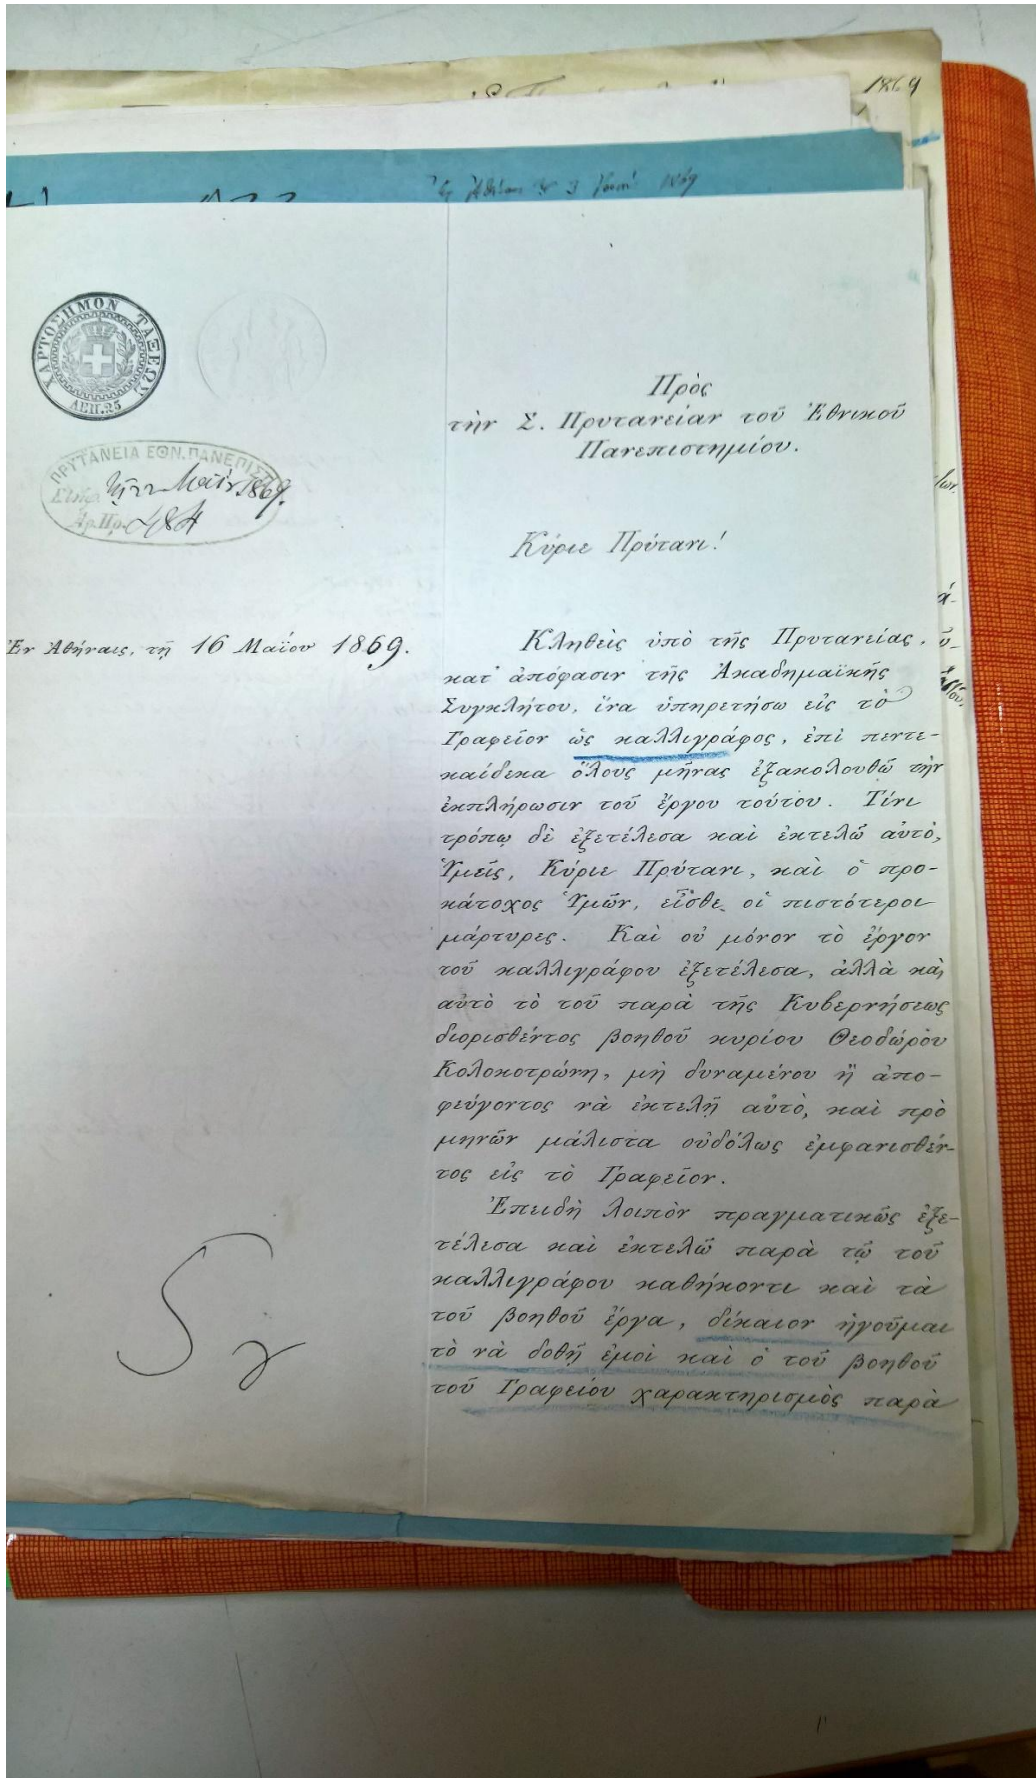 1869
ΧΑΡΤΟΣΗΜΟΝ ΤΑΞΕΩΝ
ΛΕΠ.25
ΠΡΥΤΑΝΕΙΑ ΕΘΝ. ΠΑΝΕΠΙΣΤ
τῇ 22 Μαΐου 1869.
Ἀρ.Πρ. 484
Πρὸς
τὴν Σ. Πρυτανείαν τοῦ Ἐθνικοῦ
Πανεπιστημίου.
Κύριε Πρύτανι!
Ἐν Ἀθήναις, τῇ 16 Μαΐου 1869.
Κληθεὶς ὑπὸ τῆς Πρυτανείας,
κατ' ἀπόφασιν τῆς Ἀκαδημαϊκῆς
Συγκλήτου, ἵνα ὑπηρετήσω εἰς τὸ
Γραφεῖον ὡς καλλιγράφος, ἐπὶ πεντε-
καίδεκα ὅλους μῆνας ἐξακολουθῶ τὴν
ἐκπλήρωσιν τοῦ ἔργου τούτου. Τίνι
τρόπῳ δὲ ἐξετέλεσα καὶ ἐκτελῶ αὐτὸ,
Ὑμεῖς, Κύριε Πρύτανι, καὶ ὁ προ-
κάτοχος Ὑμῶν, εἶσθε οἱ πιστότεροι
μάρτυρες. Καὶ οὐ μόνον τὸ ἔργον
τοῦ καλλιγράφου ἐξετέλεσα, ἀλλὰ καὶ
αὐτὸ τὸ τοῦ παρὰ τῆς Κυβερνήσεως
διορισθέντος βοηθοῦ κυρίου Θεοδώρου
Κολοκοτρώνη, μὴ δυναμένου ἢ ἀπο-
φεύγοντος νὰ ἐκτελῇ αὐτὸ, καὶ πρὸ
μηνῶν μάλιστα οὐδόλως ἐμφανισθέν-
τος εἰς τὸ Γραφεῖον.
Ἐπειδὴ λοιπὸν πραγματικῶς ἐξε-
τέλεσα καὶ ἐκτελῶ παρὰ τῷ τοῦ
καλλιγράφου καθήκοντι καὶ τὰ
τοῦ βοηθοῦ ἔργα, δίκαιον ἡγοῦμαι
τὸ νὰ δοθῇ ἐμοὶ καὶ ὁ τοῦ βοηθοῦ
τοῦ Γραφείου χαρακτηρισμὸς παρὰ